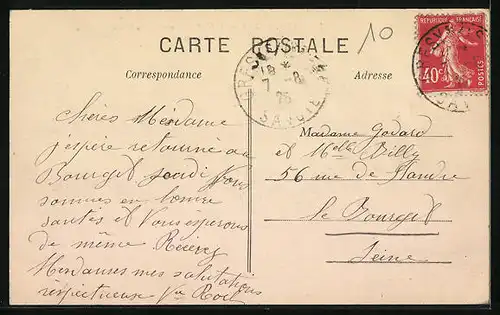 10
CARTE POSTALE
Correspondance
Adresse
REPUBLIQUE FRANÇAISE
40c
POSTES
18
7 -8
25
SAVOIE
Chères Mendame
j'espère retourné au
Bourget jeudi Nous
sommes en bonne
santés et Vous espérons
de même Recevez
Mendames mes salutations
respectueuse Ve
Madame Godard
et Melle Billy
56 rue de Flandre
le Bourget
Seine